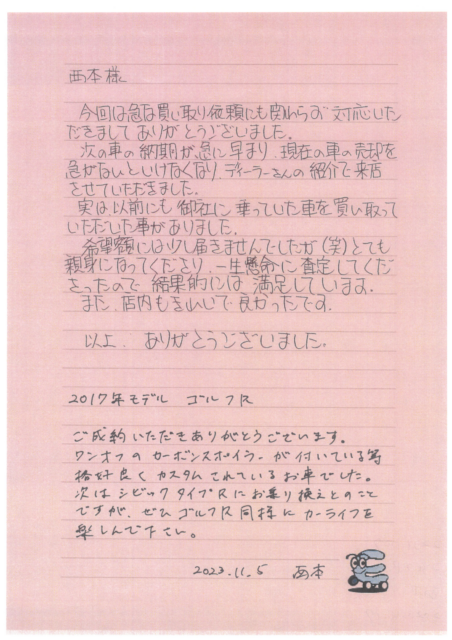 西本様
今回は急な買い取り依頼にも関わらず対応いた
だきましてありがとうございました。
次の車の納期が急に早まり、現在の車の売却を
急がないといけなくなり、ディーラーさんの紹介で来店
させていただきました。
実は以前にも御社に乗っていた車を買い取って
いただいた事がありました。
希望額には少し届きませんでしたが(笑)とても
親身になってくださり、一生懸命に査定してくだ
さったので結果的には満足しています。
また、店内もきれいで良かったです。
以上、ありがとうございました。
2017年モデル ゴルフR
ご成約いただきありがとうございます。
ワンオフのカーボンスポイラーが付いている等
格好良くカスタムされているお車でした。
次はシビックタイプRにお乗り換えとのこと
ですが、ぜひゴルフR同様にカーライフを
楽しんで下さい。
2023.11.5 西本